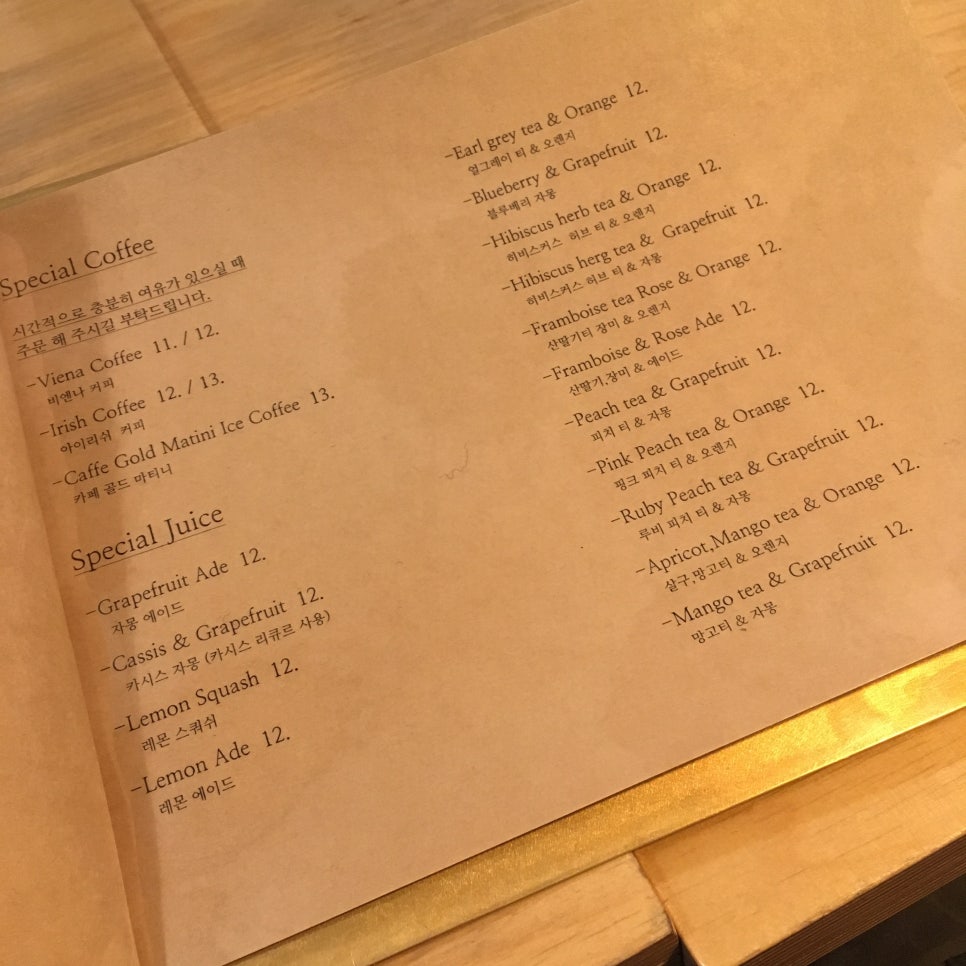 Special Coffee
시간적으로 충분히 여유가 있으실 때
주문 해 주시길 부탁드립니다.
-Viena Coffee 11. / 12.
비엔나 커피
-Irish Coffee 12. / 13.
아이리쉬 커피
-Caffe Gold Matini Ice Coffee 13.
카페 골드 마티니
Special Juice
-Grapefruit Ade 12.
자몽 에이드
-Cassis & Grapefruit 12.
카시스 자몽 (카시스 리큐르 사용)
-Lemon Squash 12.
레몬 스쿼쉬
-Lemon Ade 12.
레몬 에이드
-Earl grey tea & Orange 12.
얼그레이 티 & 오렌지
-Blueberry & Grapefruit 12.
블루베리 자몽
-Hibiscus herb tea & Orange 12.
히비스커스 허브 티 & 오렌지
-Hibiscus herg tea & Grapefruit 12.
히비스커스 허브 티 & 자몽
-Framboise tea Rose & Orange 12.
산딸기티 장미 & 오렌지
-Framboise & Rose Ade 12.
산딸기,장미 & 에이드
-Peach tea & Grapefruit 12.
피치 티 & 자몽
-Pink Peach tea & Orange 12.
핑크 피치 티 & 오렌지
-Ruby Peach tea & Grapefruit 12.
루비 피치 티 & 자몽
-Apricot,Mango tea & Orange 12.
살구,망고티 & 오렌지
-Mango tea & Grapefruit 12.
망고티 & 자몽